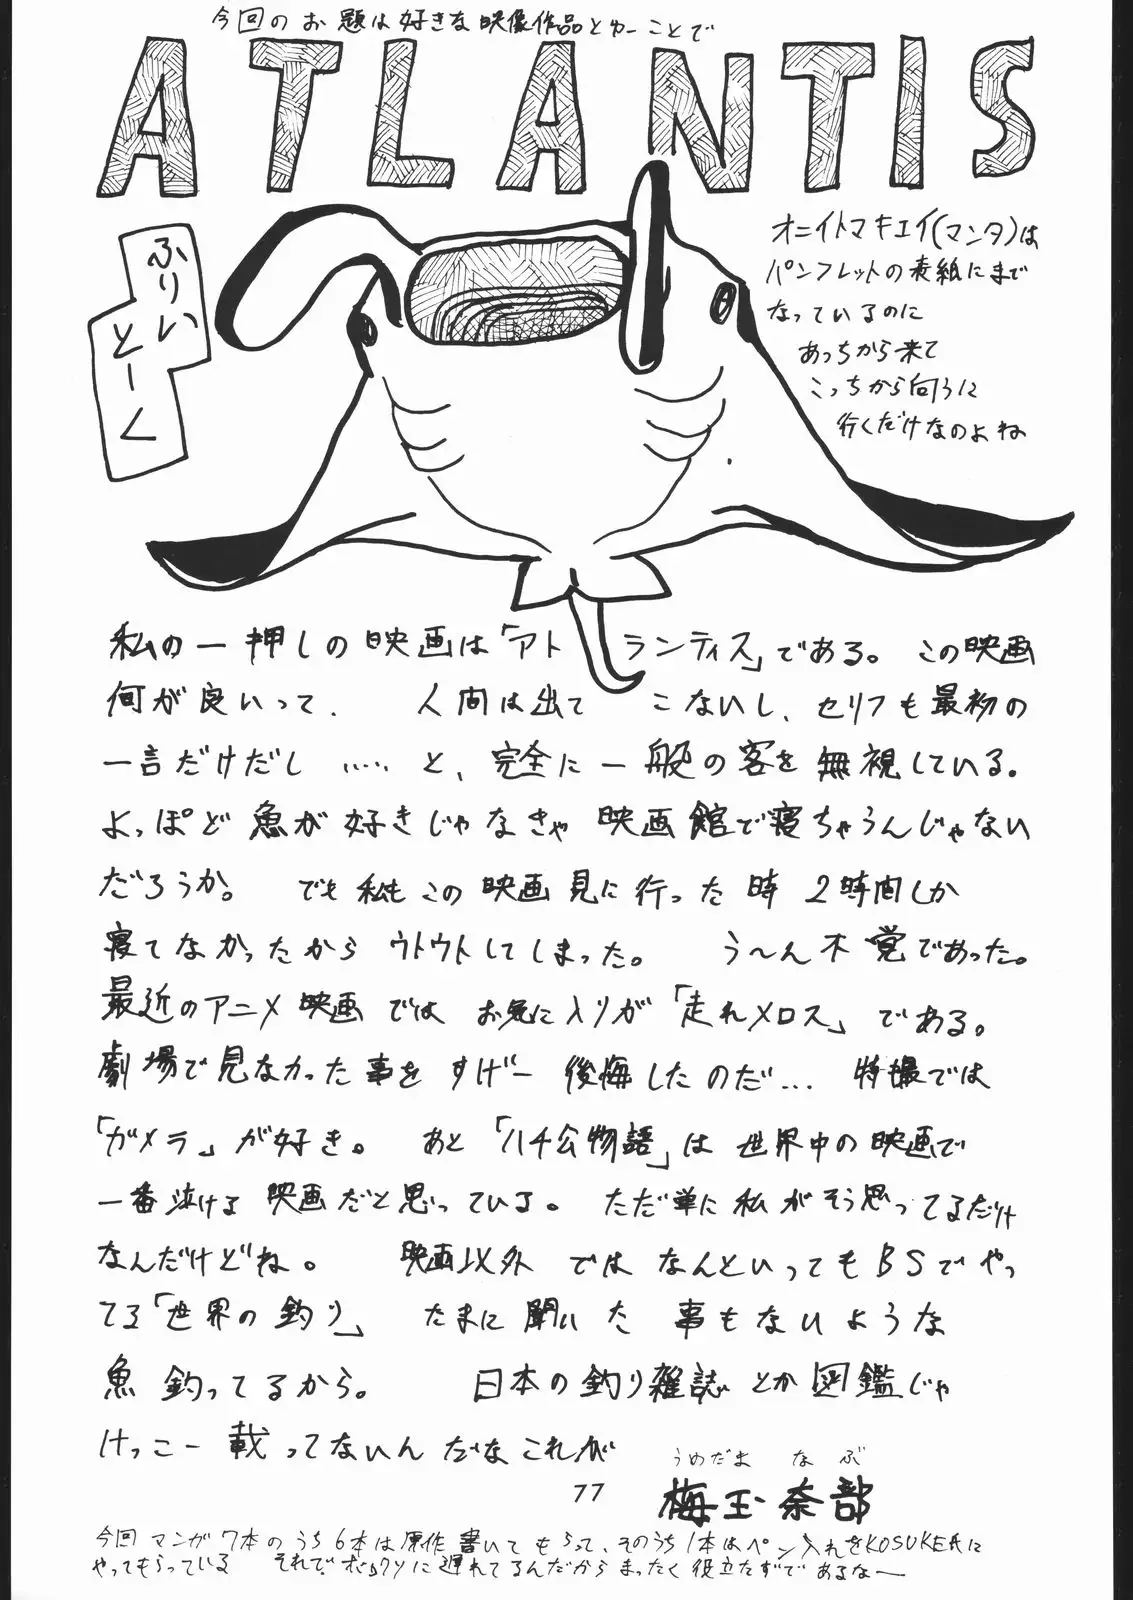 今回のお題は好きな映像作品とゆーことで
ATLANTIS
ふりい
とーく
オニイトマキエイ(マンタ)は
パンフレットの表紙にまで
なっているのに
あっちから来て
こっちから向うに
行くだけなのよね
私の一押しの映画は「アトランティス」である。この映画
何が良いって、人間は出てこないし、セリフも最初の
一言だけだし……と、完全に一般の客を無視している。
よっぽど魚が好きじゃなきゃ映画館で寝ちゃうんじゃない
だろうか。でも私もこの映画見に行った時2時間しか
寝てなかったからウトウトしてしまった。う〜ん不覚であった。
最近のアニメ映画ではお気に入りが「走れメロス」である。
劇場で見なかった事をすげー後悔したのだ…特撮では
「ガメラ」が好き。あと「ハチ公物語」は世界中の映画で
一番泣ける映画だと思っている。ただ単に私がそう思ってるだけ
なんだけどね。映画以外ではなんといってもBSでやっ
てる「世界の釣り」たまに聞いた事もないような
魚釣ってるから。日本の釣り雑誌とか図鑑じゃ
けっこー載ってないんだなこれが
うめだま なぶ
梅玉奈部
77
今回マンガ7本のうち6本は原作書いてもらって、そのうち1本はペン入れをKOSUKE氏に
やってもらっている それで、ボロクソに遅れてるんだからまったく役立たずであるなー